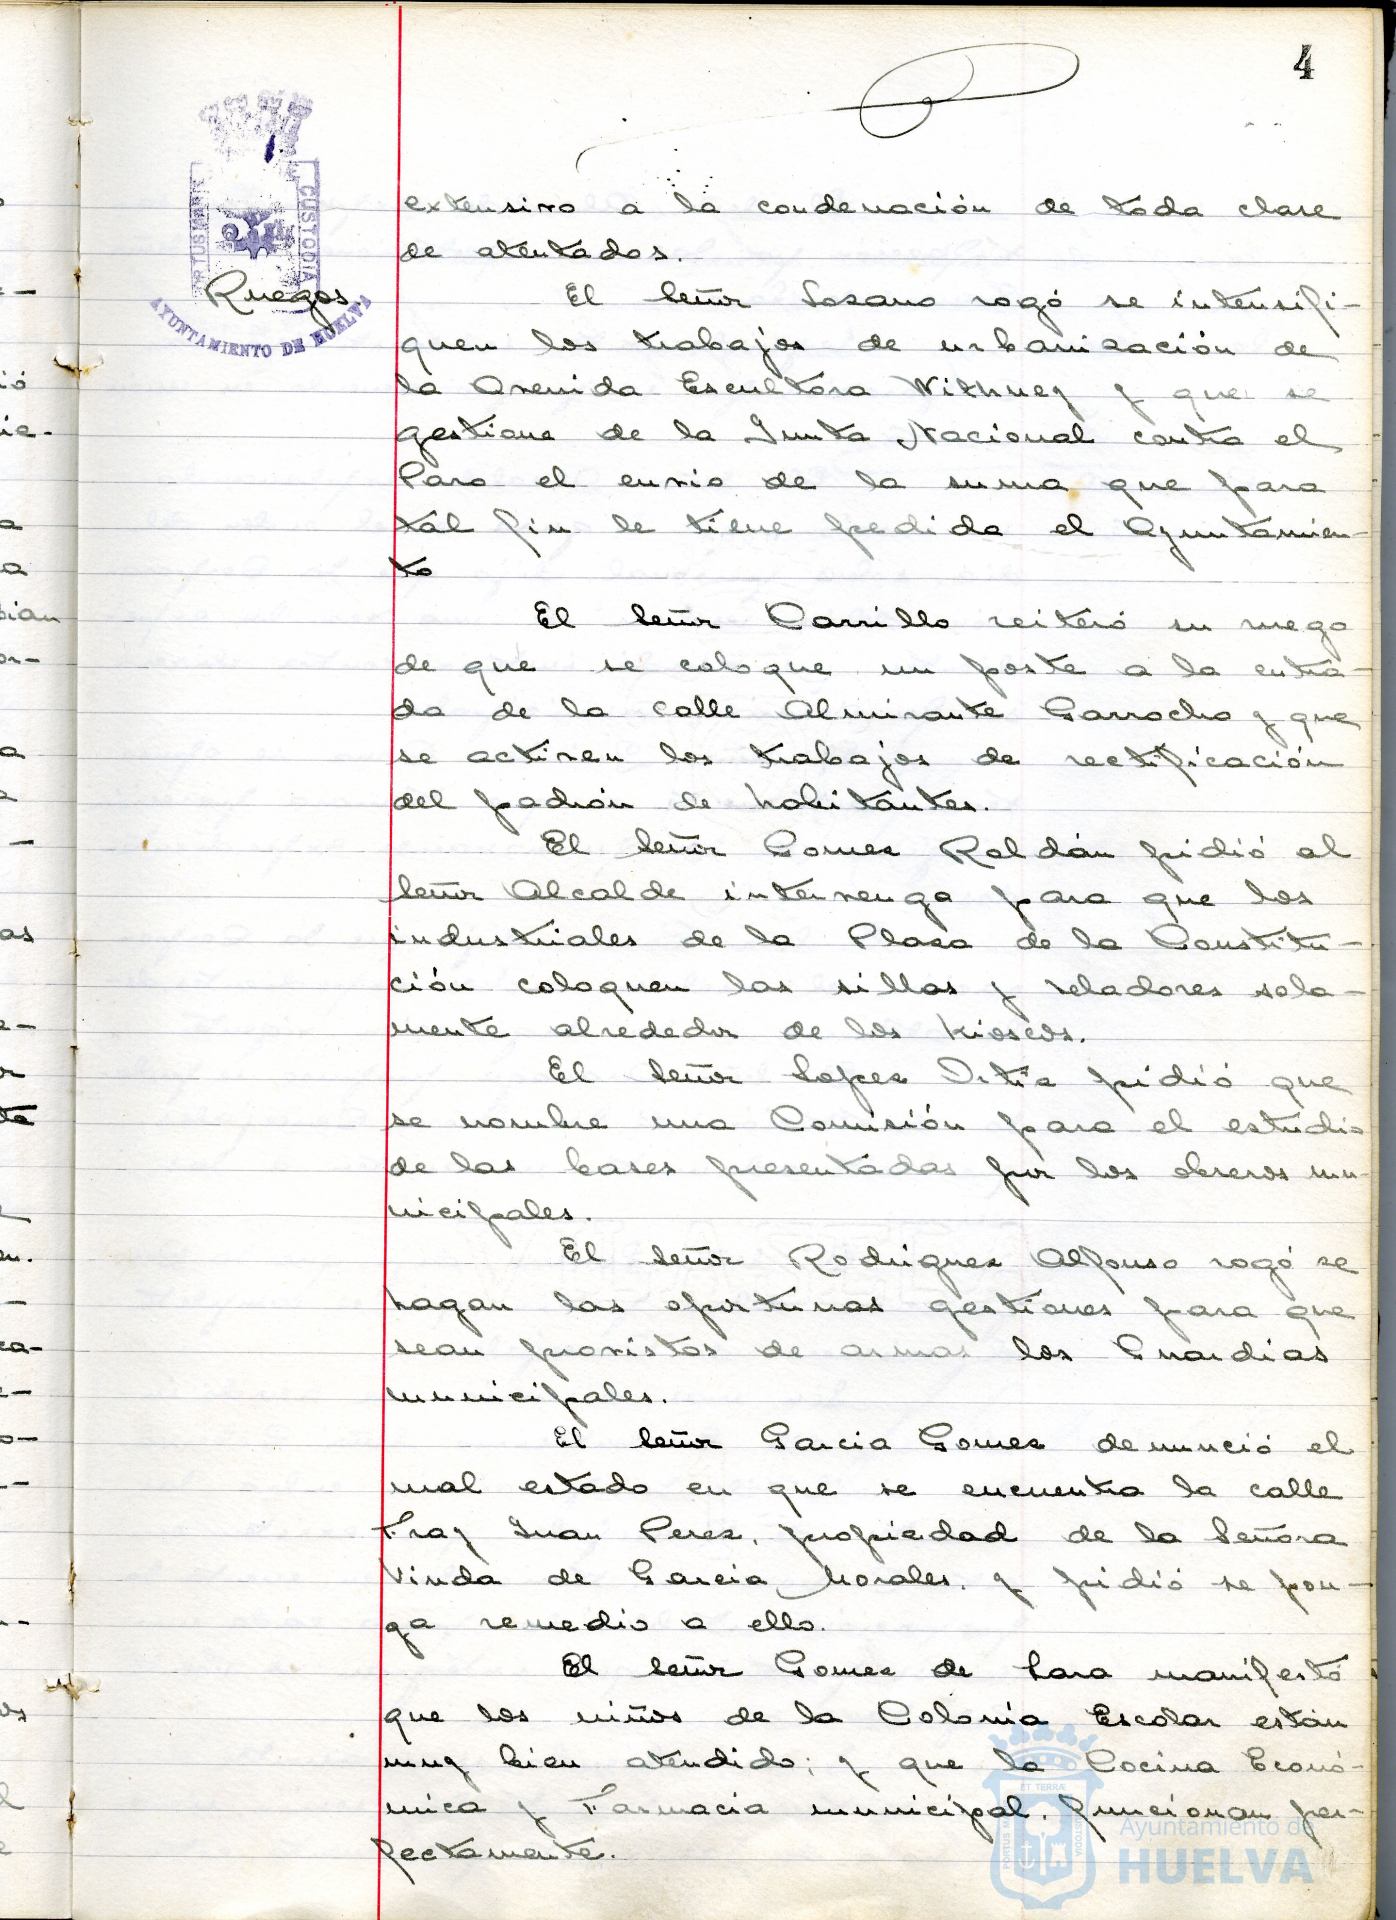 4
PORTUS MARIS
CUSTODIA
AYUNTAMIENTO DE HUELVA
Ruegos.
extensivo a la condenación de toda clase
de atentados.
El Señor Lozano rogó se intensifi-
quen los trabajos de urbanización de
la Avenida Escultora Withney y que se
gestione de la Junta Nacional contra el
Paro el envio de la suma que para
tal fin le tiene pedida el Ayuntamien-
to
El Señor Carrillo reiteró su ruego
de que se coloque un poste a la entra-
da de la calle Almirante Garrocho y que
se activen los trabajos de rectificación
del padrón de habitantes.
El Señor Gomez Roldán pidió al
Señor Alcalde intervenga para que los
industriales de la Plaza de la Constitu-
ción coloquen las sillas y veladores sola-
mente alrededor de los kioscos.
El Señor Lopez Ortiz pidió que
se nombre una Comisión para el estudio
de las bases presentadas por los obreros mu-
nicipales.
El Señor Rodriguez Alfonso rogó se
hagan las oportunas gestiones para que
sean provistos de armas los Guardias
municipales.
El Señor Garcia Gomez denunció el
mal estado en que se encuentra la calle
Fray Juan Perez, propiedad de la Señora
Viuda de Garcia Morales, y pidió se pon-
ga remedio a ello.
El Señor Gomez de Lara manifestó
que los niños de la Colonia Escolar están
muy bien atendido; y que la Cocina Econó-
mica y Farmacia municipal, funcionan per-
fectamente.
Ayuntamiento de
HUELVA